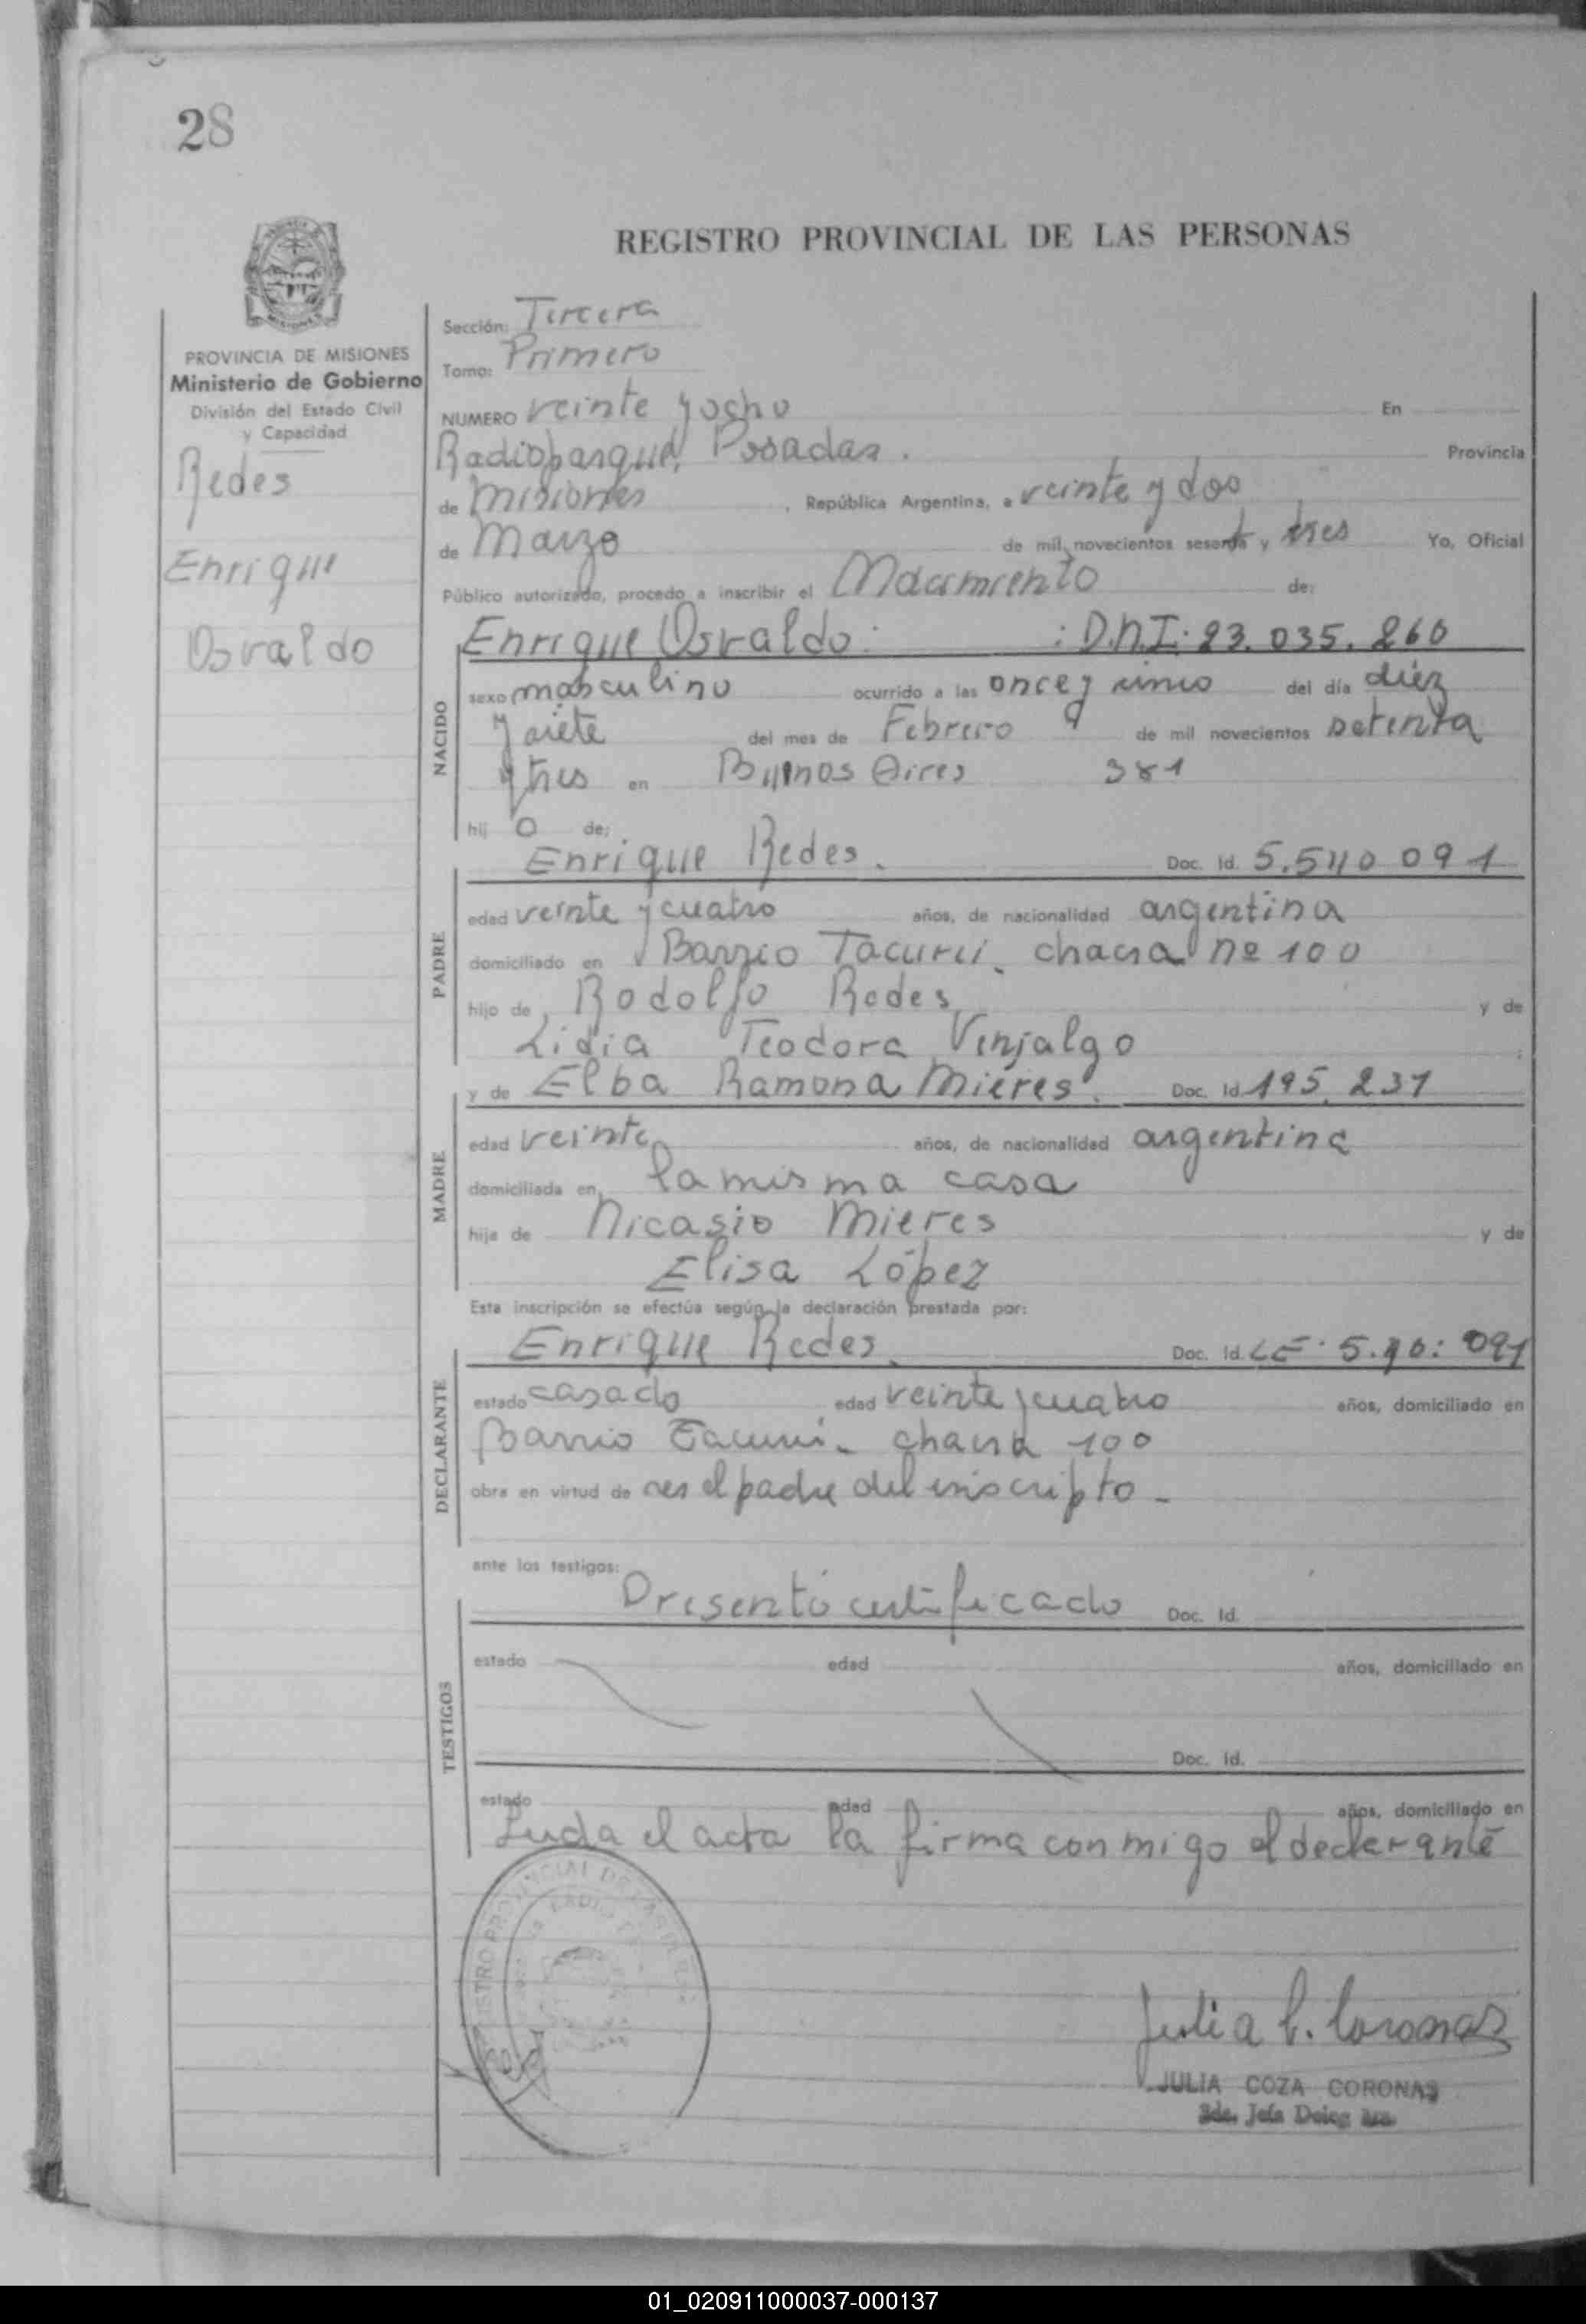 28
REGISTRO PROVINCIAL DE LAS PERSONAS
PROVINCIA DE MISIONES
Ministerio de Gobierno
División del Estado Civil
y Capacidad
Redes
Enrique
Osvaldo
Sección: Tercera
Tomo: Primero
NUMERO veinte y ocho En
Radioparque, Posadas. Provincia
de Misiones, República Argentina, a veinte y dos
de Marzo de mil novecientos sesenta y tres Yo, Oficial
Público autorizado, procedo a inscribir el Nacimiento de:
NACIDO
Enrique Osvaldo: : D.N.I: 23.035.260
sexo masculino ocurrido a las once y cinco del día diez
y siete del mes de Febrero de mil novecientos setenta
y tres en Buenos Aires 381
hij o de:
PADRE
Enrique Redes. Doc. Id. 5.540 091
edad veinte y cuatro años, de nacionalidad argentina
domiciliado en Barrio Tacurú, chacra nº 100
hijo de Rodolfo Redes y de
Lidia Teodora
MADRE
y de Elba Ramona Mieres. Doc. Id. 195.231
edad veinte años, de nacionalidad argentina
domiciliada en la misma casa
hija de Nicasio Mieres y de
Elisa López
Esta inscripción se efectúa según la declaración prestada por:
DECLARANTE
Enrique Redes. Doc. Id. LE 5. 091
estado casado edad veinte y cuatro años, domiciliado en
Barrio Tacurú - chacra 100
obra en virtud de ser el padre del inscripto -
ante los testigos:
TESTIGOS
Presentó certificado Doc. Id.
estado edad años, domiciliado en
Doc. Id.
estado edad años, domiciliado en
Leida el acta la firma conmigo el declarante
Julia C. Coronas
JULIA COZA CORONAS
01_020911000037-000137